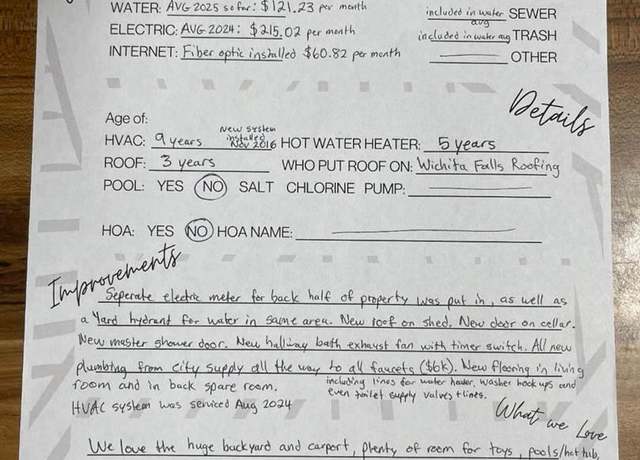 WATER: AVG 2025 so far: $121.23 per month included in water avg SEWER
ELECTRIC: AVG 2024: $215.02 per month included in water avg TRASH
INTERNET: Fiber optic installed $60.82 per month OTHER
Details
Age of:
HVAC: 9 years New system installed Nov 2016 HOT WATER HEATER: 5 years
ROOF: 3 years WHO PUT ROOF ON: Wichita Falls Roofing
POOL: YES NO SALT CHLORINE PUMP:
HOA: YES NO HOA NAME:
Improvements
Seperate electric meter for back half of property was put in, as well as
a yard hydrant for water in same area. New roof on shed. New door on cellar.
New master shower door. New hallway bath exhaust fan with timer switch. All new
plumbing from city supply all the way to all faucets ($6k). New flooring in living
room and in back spare room. including lines for water heater, washer hook ups and
even toilet supply valves + lines.
HVAC system was serviced Aug 2024
What we Love
We love the huge backyard and carport, plenty of room for toys, pools/hot tub,